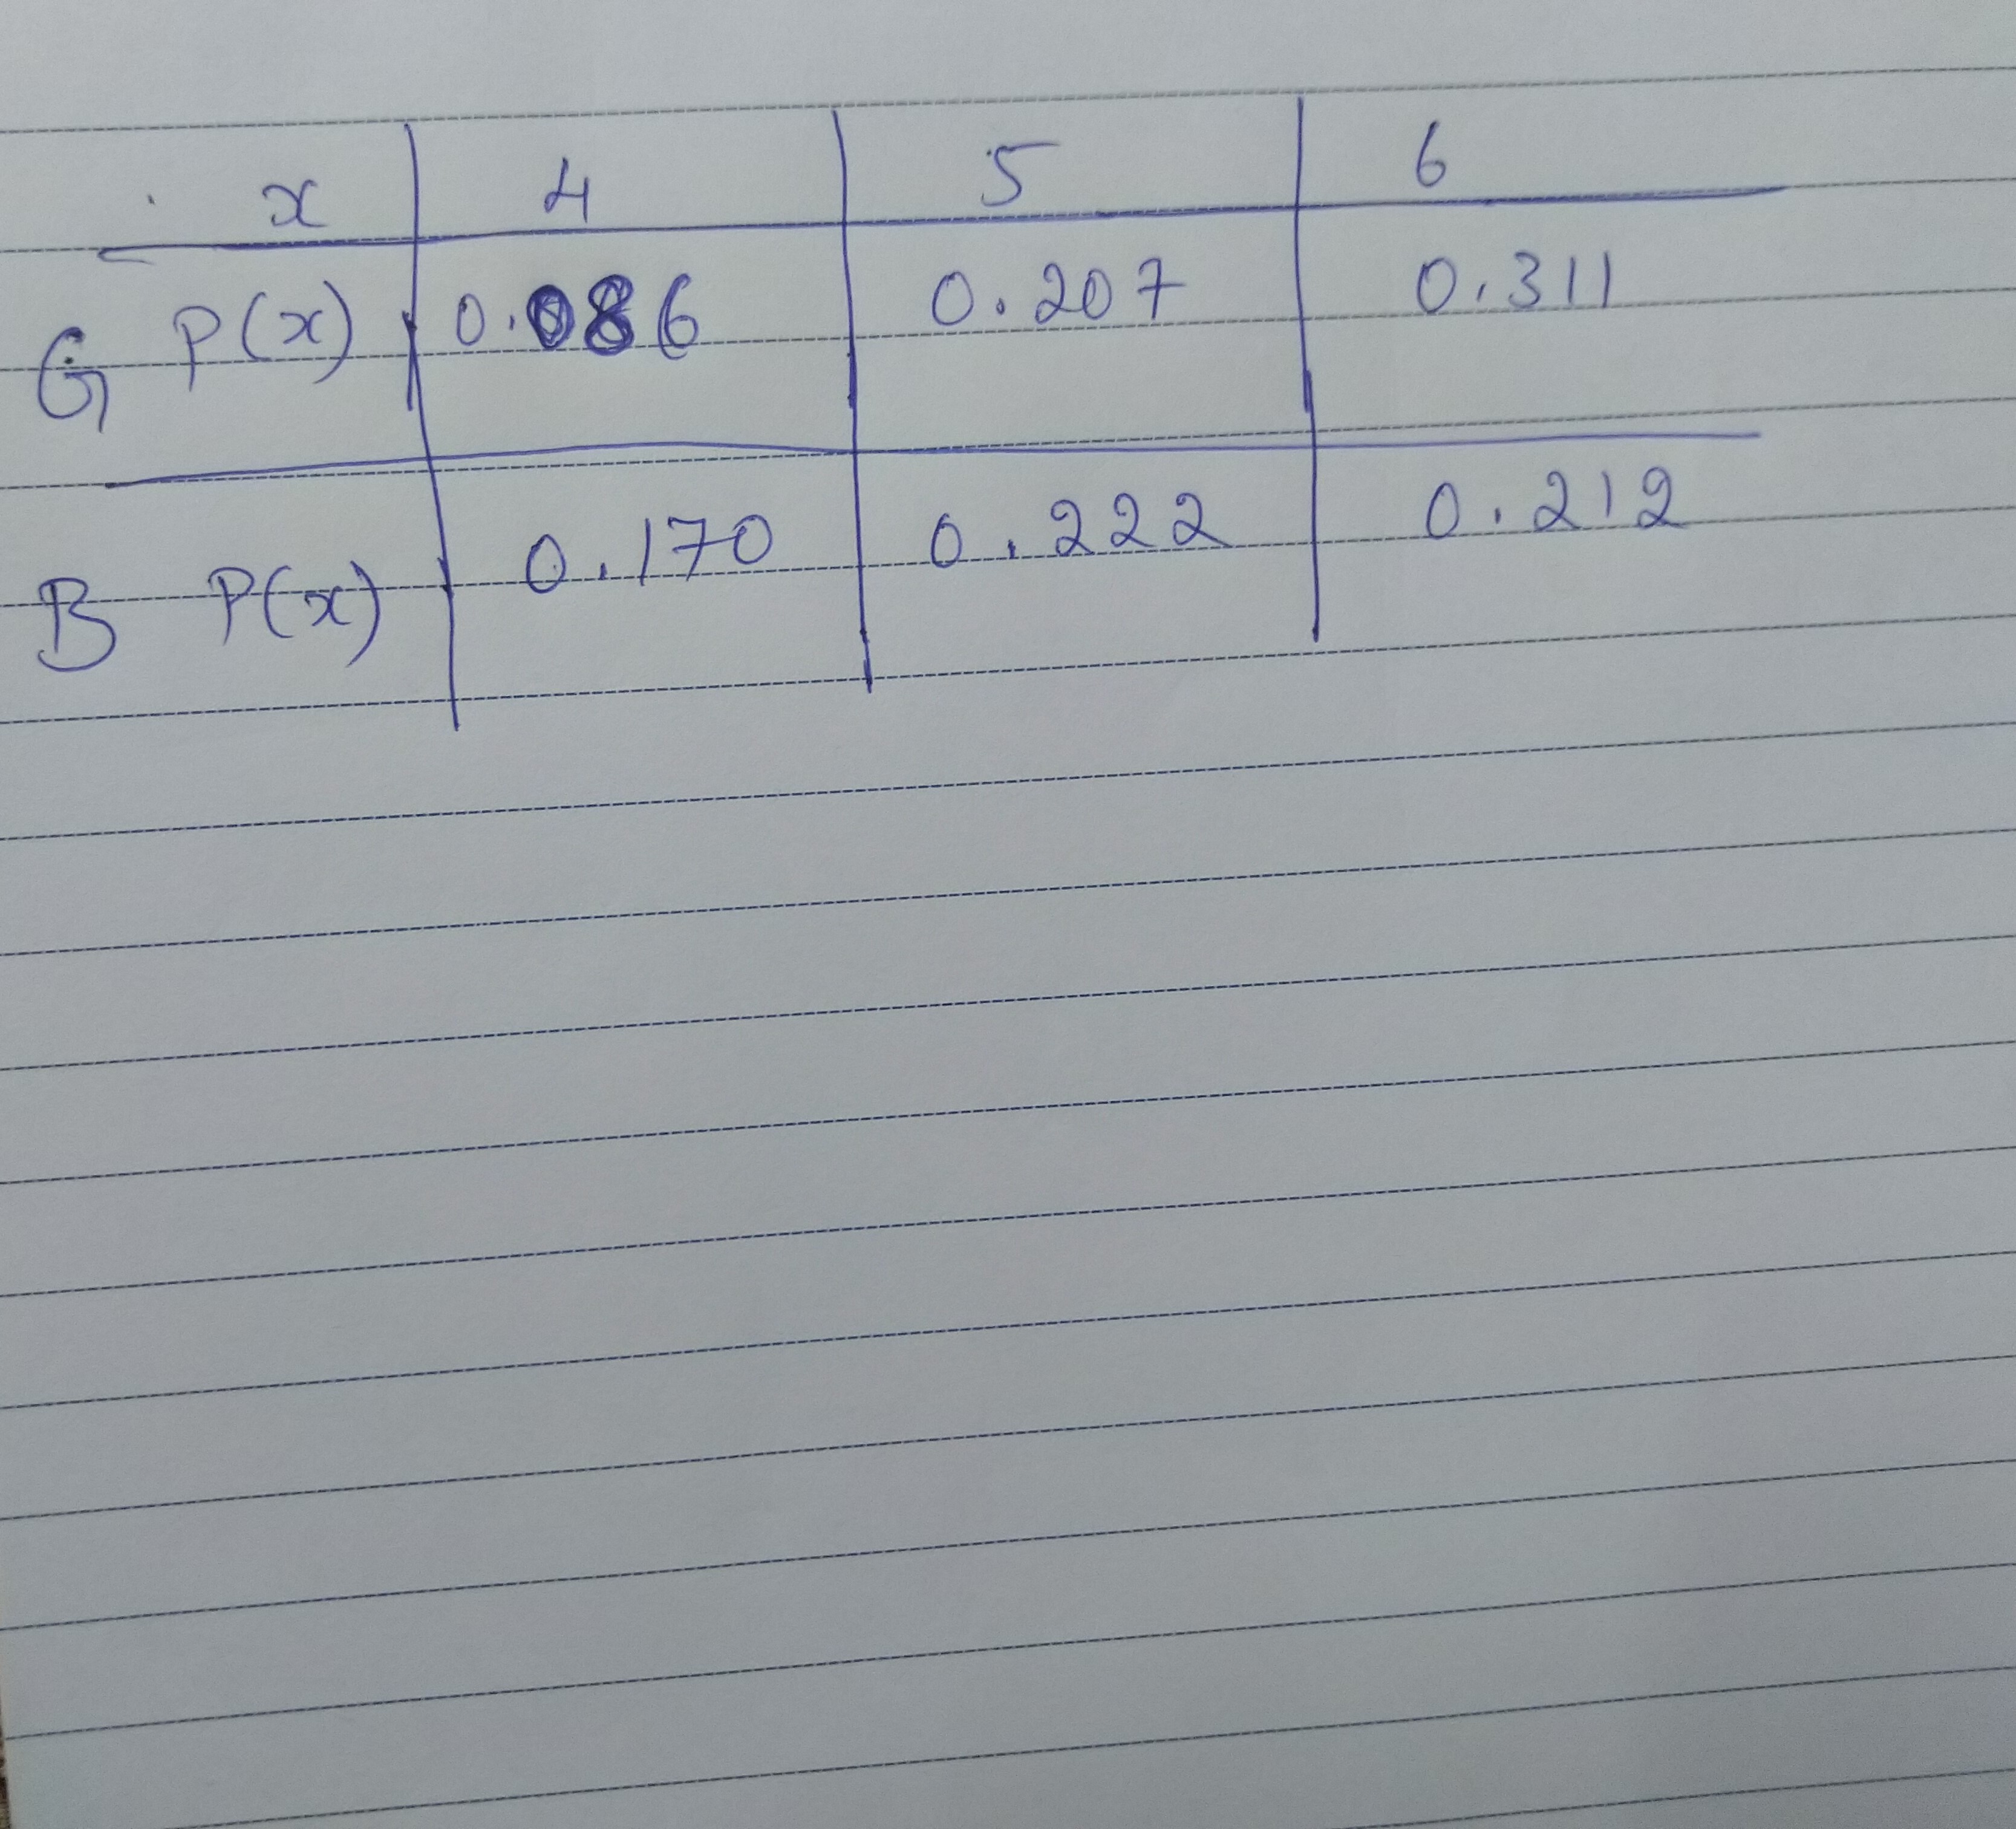 x 4 5 6
G P(x) 0.086 0.207 0.311
B P(x) 0.170 0.222 0.212